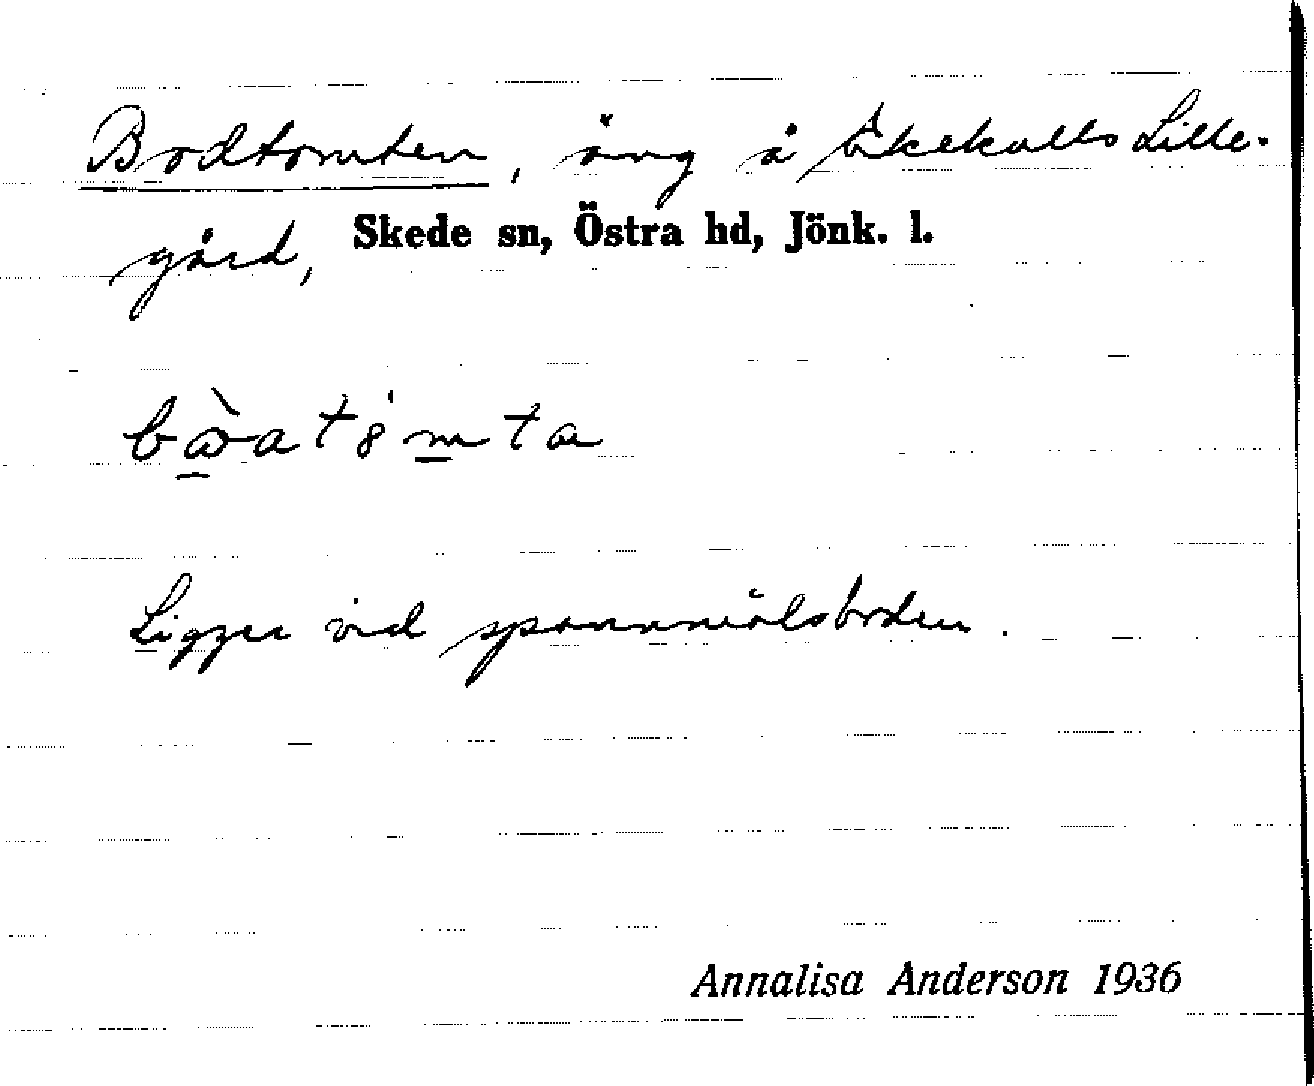 Bodtomten, äng å Ekekulls Lille-
gård, Skede sn, Östra hd, Jönk. l.
Ligger vid spannmålsboden.
Annalisa Anderson 1936